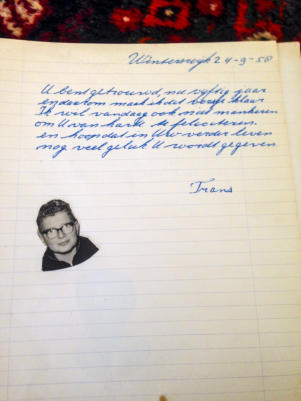 Winterswijk 24-9-58
U bent getrouwd, nu vijftig jaar
en daarom maak ik dit boekje klaar
Ik wil vandaag ook niet mankeren
om U van harte te feliciteren.
en hoop dat in Uw verder leven
nog veel geluk U wordt gegeven
Frans